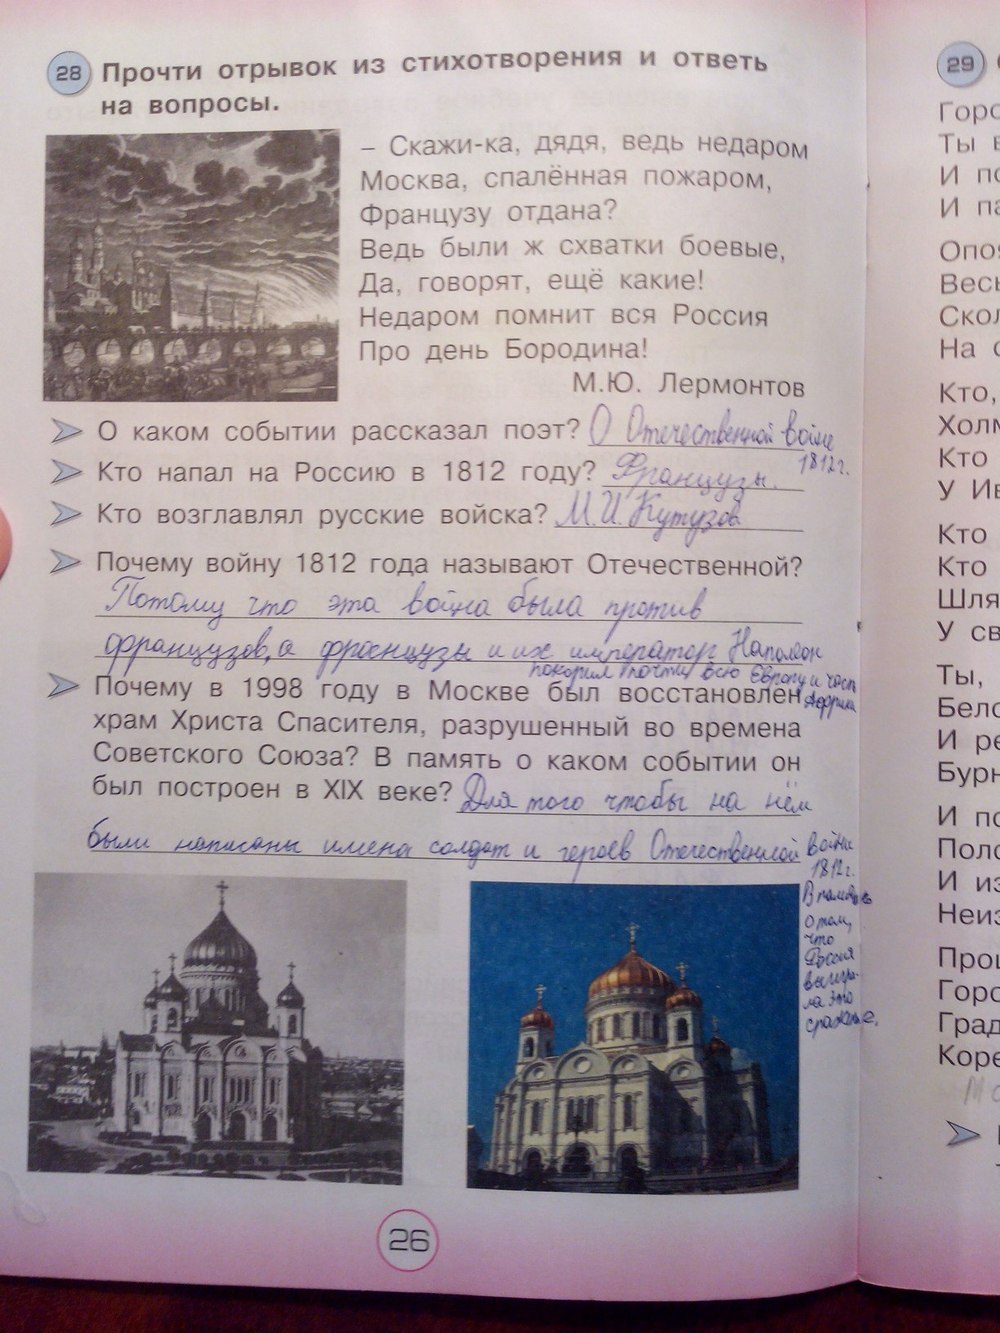 28 Прочти отрывок из стихотворения и ответь
на вопросы.
– Скажи-ка, дядя, ведь недаром
Москва, спалённая пожаром,
Французу отдана?
Ведь были ж схватки боевые,
Да, говорят, ещё какие!
Недаром помнит вся Россия
Про день Бородина!
М.Ю. Лермонтов
О каком событии рассказал поэт? О Отечественной войне
1812г.
Кто напал на Россию в 1812 году? Французы.
Кто возглавлял русские войска? М.И.Кутузов
Почему войну 1812 года называют Отечественной?
Потому что эта война была против
французов, а французы и их император Наполеон
покорил почти всю Европу и часть
Африки
Почему в 1998 году в Москве был восстановлен
храм Христа Спасителя, разрушенный во времена
Советского Союза? В память о каком событии он
был построен в XIX веке? Для того чтобы на нём
были написаны имена солдат и героев Отечественной войны
1812г.
В память
о том,
что
Россия
выигра-
ла это
сражение.
26
29
Горо
Ты в
И по
И па
Опоя
Весь
Скол
На с
Кто,
Холм
Кто
У Ив
Кто
Кто
Шля
У св
Ты,
Бело
И ре
Бурн
И по
Поло
И из
Неиз
Проц
Горо
Град
Коре